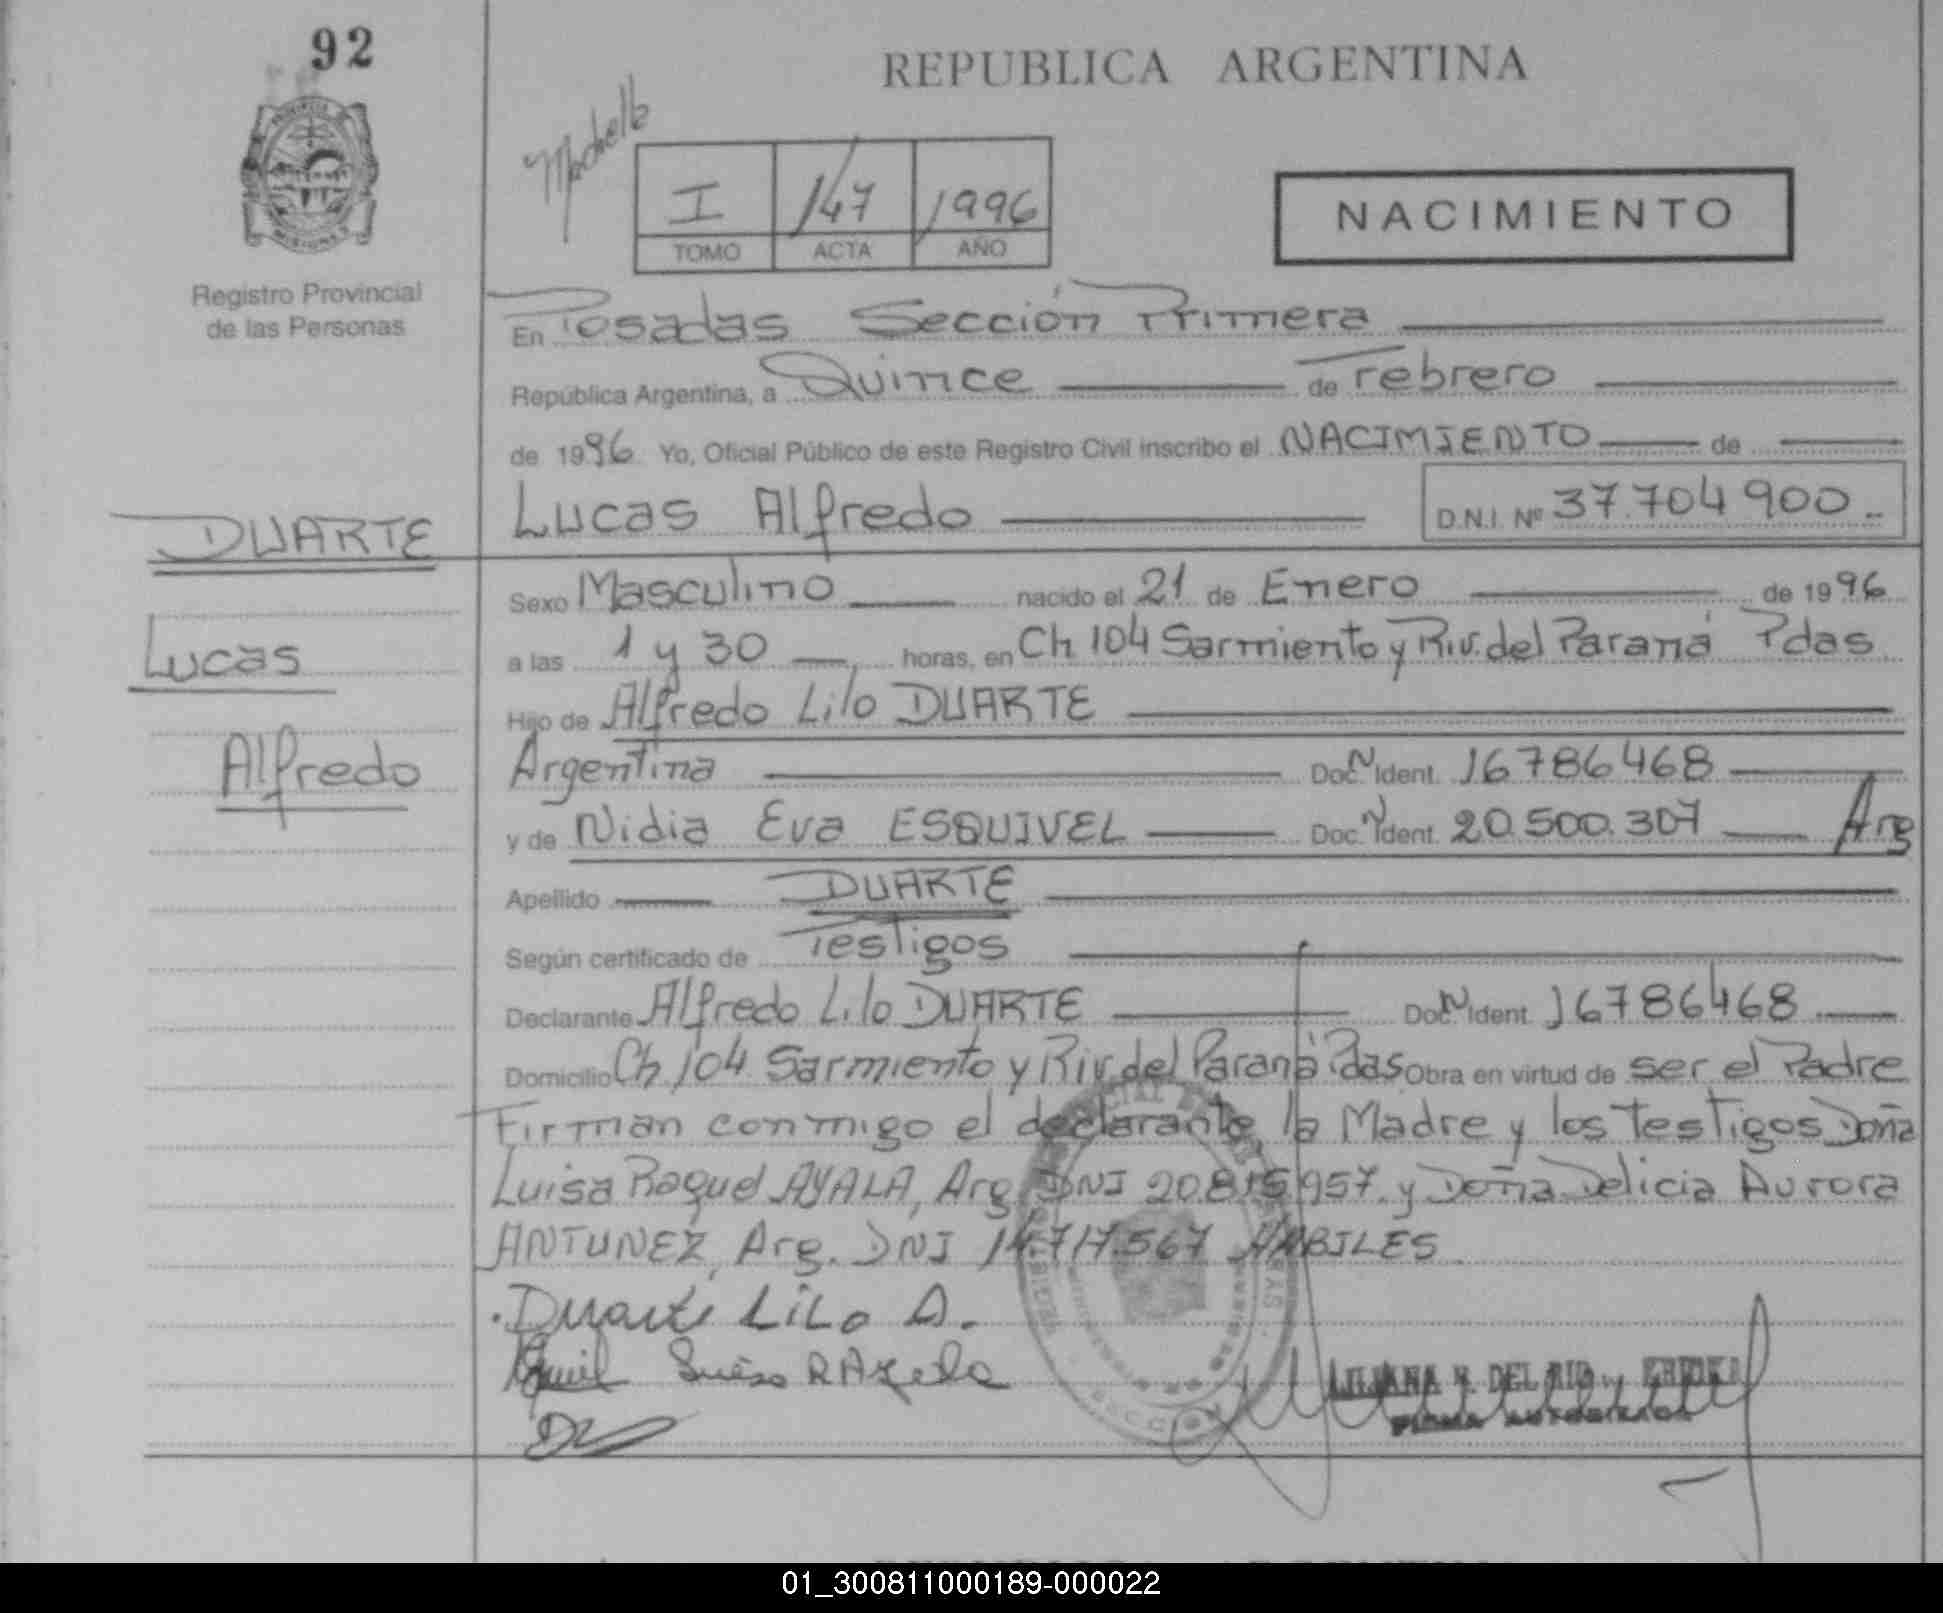 92
REPUBLICA ARGENTINA
PROVINCIA DE MISIONES
Registro Provincial
de las Personas
I 147 1996
TOMO ACTA AÑO
NACIMIENTO
En Posadas Sección Primera
República Argentina, a Quince de Febrero
de 1996 Yo, Oficial Público de este Registro Civil inscribo el NACIMIENTO de
Lucas Alfredo D.N.I. Nº 37.704 900
DUARTE
Lucas
Alfredo
Sexo Masculino nacido el 21 de Enero de 1996
a las 1 y 30 horas, en Ch 104 Sarmiento y Riv. del Paraná Pdas
Hijo de Alfredo Lilo DUARTE
Argentina Doc. N Ident. 16786468
y de Nidia Eva ESQUIVEL Doc. N Ident. 20.500.307 Arg
Apellido DUARTE
Según certificado de Testigos
Declarante Alfredo Lilo DUARTE Doc. N Ident. 16786468
Domicilio Ch. 104 Sarmiento y Riv. del Paraná Pdas Obra en virtud de ser el Padre
Firman conmigo el declarante, la Madre y los testigos Doña
Luisa Raquel AYALA, Arg. DNI 20.815.957. y Doña Delicia Aurora
ANTUNEZ, Arg. DNI 14.717.567 HABILES
Duarte Lilo A.
LILIANA DEL RIO
FIRMA AUTORIZADA
01_300811000189-000022